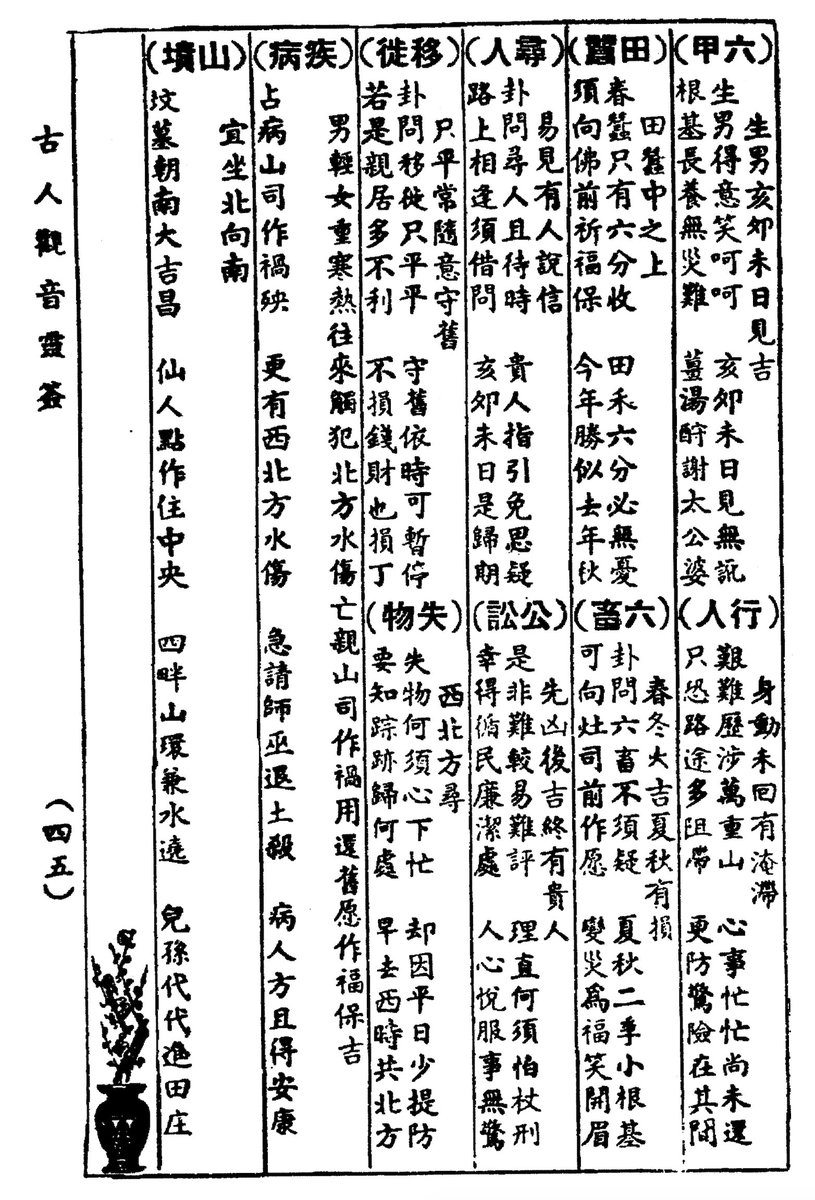 (六甲)
生男亥卯未日見吉
生男得意笑呵呵 亥卯未日見無訛
根基長養無災難 薑湯酧謝太公婆
(行人)
身動未回有淹滯
艱難歷涉萬重山 心事忙忙尚未還
只恐路途多阻滯 更防驚險在其間
(田蠶)
田蠶中之上
春蠶只有六分收 田禾六分必無憂
須向佛前祈福保 今年勝似去年秋
(六畜)
春冬大吉夏秋有損
卦問六畜不須疑 夏秋二季小根基
可向灶司前作愿 變災為福笑開眉
(尋人)
易見有人說信
卦問尋人且待時 貴人指引免思疑
路上相逢須借問 亥卯未日是歸期
(公訟)
先凶後吉終有貴人
是非難較易難評 理直何須怕杖刑
幸得循民廉潔處 人心悅服事無驚
(移徙)
只平常隨意守舊
卦問移徙只平平 守舊依時可暫停
若是親居多不利 不損錢財也損丁
(失物)
西北方尋
失物何須心下忙 却因平日少提防
要知踪跡歸何處 早去西時共北方
(疾病)
男輕女重寒熱往來觸犯北方水傷亡親山司作禍用還舊愿作福保吉
占病山司作禍殃 更有西北方水傷 急請師巫退土殺 病人方且得安康
(山墳)
宜坐北向南
坟墓朝南大吉昌 仙人點作住中央 四畔山環兼水遶 兒孫代代進田庄
古人觀音靈簽
(四五)